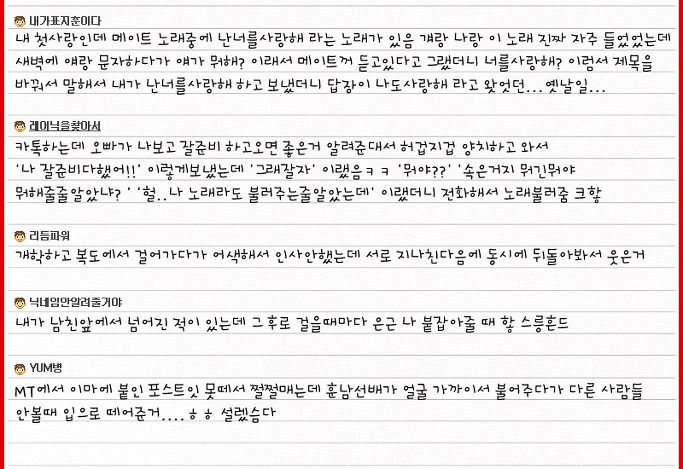 내가표지훈이다
내 첫사랑인데 메이트 노래중에 난너를사랑해 라는 노래가 있음 걔랑 나랑 이 노래 진짜 자주 들었었는데
새벽에 얘랑 문자하다가 얘가 뭐해? 이래서 메이트꺼 듣고있다고 그랬더니 너를사랑해? 이럼서 제목을
바꿔서 말해서 내가 난너를사랑해 하고 보냈더니 답장이 나도사랑해 라고 왓엇던...옛날일...
레이닉을찾아서
카톡하는데 오빠가 나보고 잘준비 하고오면 좋은거 알려준대서 허겁지겁 양치하고 와서
'나 잘준비다했어!!' 이렇게보냈는데 '그래잘자' 이랬음ㅋㅋ '뭐야??' '속은거지 뭐긴뭐야
뭐해줄줄알았냐?' '헐..나 노래라도 불러주는줄알았는데' 이랬더니 전화해서 노래불러줌 크핳
리듬파워
개학하고 복도에서 걸어가다가 어색해서 인사안했는데 서로 지나친다음에 동시에 뒤돌아봐서 웃은거
닉네임안알려줄거야
내가 남친앞에서 넘어진 적이 있는데 그후로 걸을때마다 은근 나 붙잡아줄 때 핳 스릉흔드
YUM병
MT에서 이마에 붙인 포스트잇 못떼서 쩔쩔매는데 훈남선배가 얼굴 가까이서 불어주다가 다른 사람들
안볼때 입으로 떼어준거....ㅎㅎ 설렜슴다